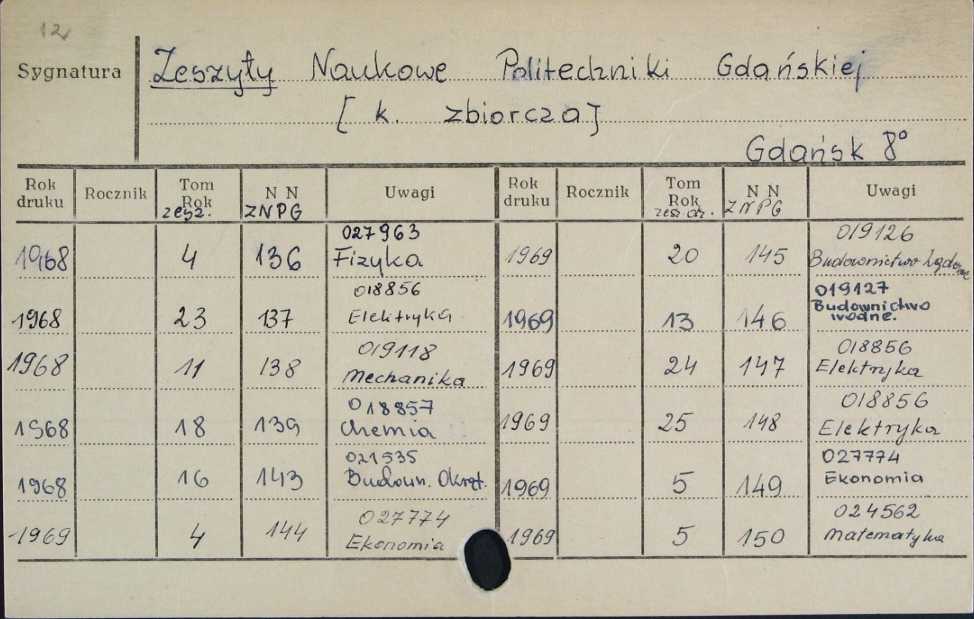 12
Sygnatura
Zeszyty Naukowe Politechniki Gdańskiej
[ k. zbiorcza ]
Gdańsk 8°
Rok druku Rocznik Tom Rok zesz. N N ZNPG Uwagi Rok druku Rocznik Tom Rok zesz. N N ZNPG Uwagi
1968 4 136 027963 Fizyka 1969 20 145 019126 Budownictwo Lądowe
1968 23 137 018856 Elektryka 1969 13 146 019127 Budownictwo wodne.
1968 11 138 019118 Mechanika 1969 24 147 018856 Elektryka
1968 18 139 018857 Chemia 1969 25 148 018856 Elektryka
1968 16 143 021535 Budown. Okręt. 1969 5 149 027774 Ekonomia
1969 4 144 027774 Ekonomia 1969 5 150 024562 Matematyka